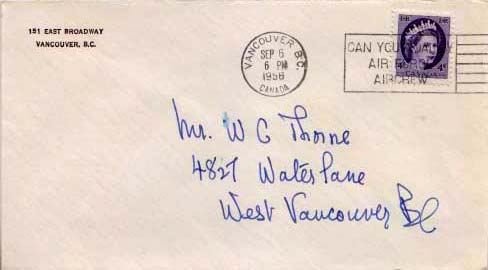 151 EAST BROADWAY
VANCOUVER, B.C.
VANCOUVER B.C.
SEP 6
6 PM
1956
CANADA
CAN YOU
AIR
AIRCREW
Mr. W C Thorne
4827 Water Lane
West Vancouver BC